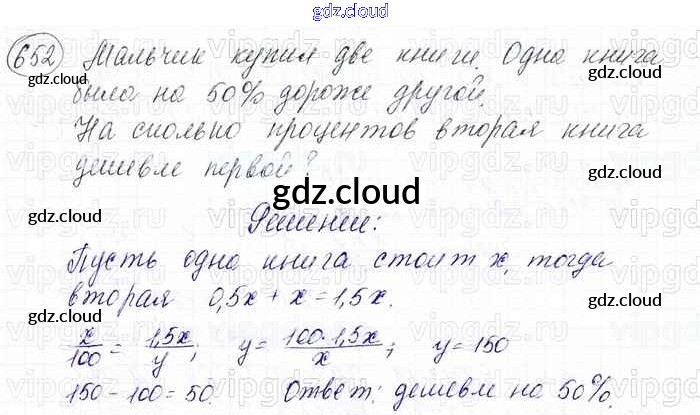 gdz.cloud
652 Мальчик купил две книги. Одна книга
была на 50% дороже другой.
На сколько процентов вторая книга
дешевле первой?
gdz.cloud
Решение:
Пусть одна книга стоит x, тогда
вторая 0,5x + x = 1,5x.
x/100 = 1,5x/y; y = 100·1,5x/x; y = 150
150 - 100 = 50. Ответ: дешевле на 50%.
gdz.cloud
gdz.cloud
gdz.cloud
gdz.cloud
gdz.cloud
gdz.cloud
gdz.cloud
gdz.cloud